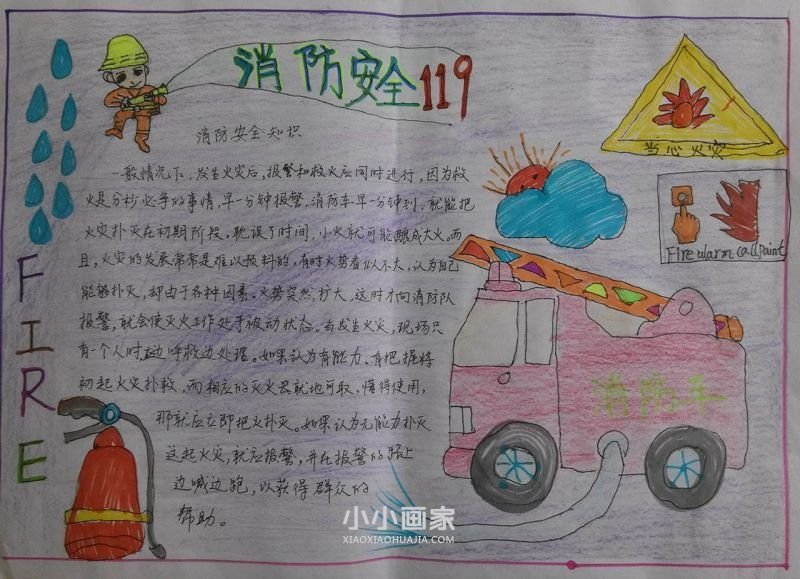 消防安全119
消防安全知识
一般情况下，发生火灾后，报警和救火应同时进行，因为救
火是分秒必争的事情，早一分钟报警，消防车早一分钟到，就能把
火灾扑灭在初期阶段，耽误了时间，小火就可能酿成大火。而
且，火灾的发展常常是难以预料的，有时火势看似不大，认为自己
能够扑灭，却由于各种因素，火势突然扩大，这时才向消防队
报警，就会使灭火工作处于被动状态。当发生火灾，现场只
有一个人时，应边呼救边处理。如果认为有能力、有把握将
初起火灾扑救，而相应的灭火器就地可取、懂得使用，
那就应立即把火扑灭。如果认为无能力扑灭
这起火灾，就应报警，并在报警的路上
边喊边跑，以获得群众的
帮助。
FIRE
当心火灾
Fire alarm call paint
消防车
小小画家
XIAOXIAOHUAJIA.COM